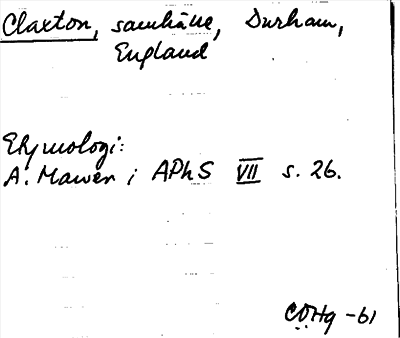 Claxton, samhälle, Durham,
England
Etymologi:
A. Mawer i APhS VII s. 26.
CÖHg -61